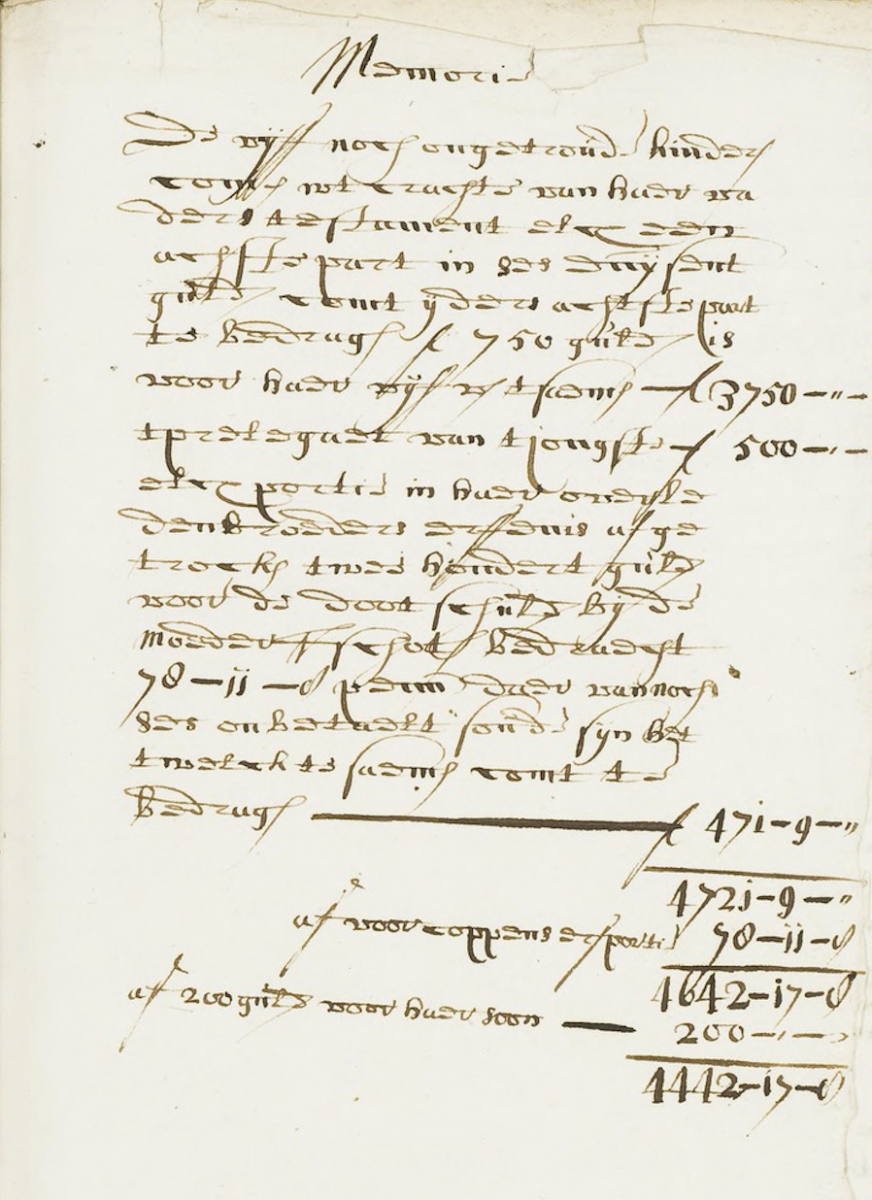 Memorie
De vijff noch ongetroude kinders
comen wt crachte van haer va
ders testament elcx een
achste part in ses duijsent
guld comt ijders achtste part
te bedragen f 750 guld is
voor haer vijf v tsaemen — f 3750 — " —
tprelegaet van tjongste f 500 — " —
elcx portie in haer overle
den broeders erffenis afge
trocken twee hondert guld
voor de dootschuld bij de
moeder geschot bedraecht
78 — ii — 8 penn daer van noch
ses onbetaelt soude sijn het
twelck te saemen comt te
bedragen — f 471 — 9 — "
4721 — 9 — "
af voor coppens erfportie 78 — ii — 8
4642 — 17 — 8
af 200 guld voor haer soon — 200 — " —
4442 — 17 — 8